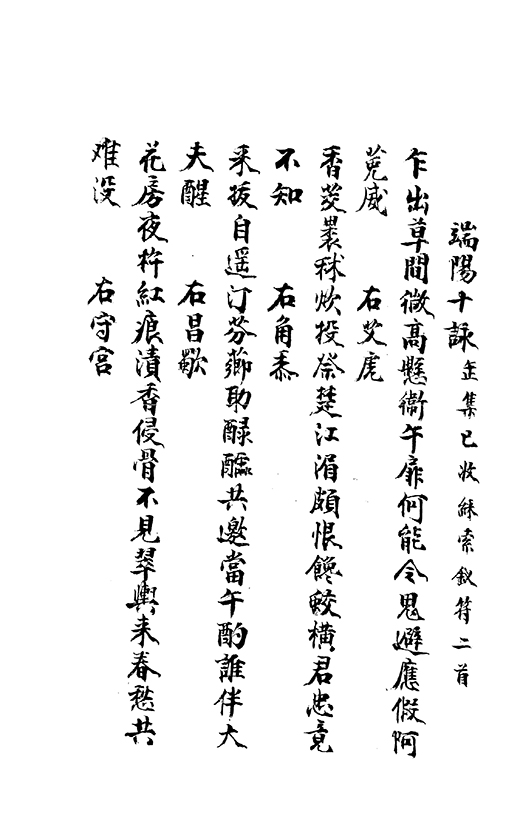 端陽十詠 㱏集已收綵索釵符二首
乍出草間微高懸衛午扉何能令鬼避應假阿
菟威　右艾虎
香茭裹秫炊投祭楚江湄頗恨饞蛟橫君忠竟
不知　右角黍
采掇自遥汀芬薌助醁醽共邀當午酌誰伴大
夫醒　右昌歜
花房夜杵紅痕漬香侵骨不見翠輿來春愁共
难没　右守宫